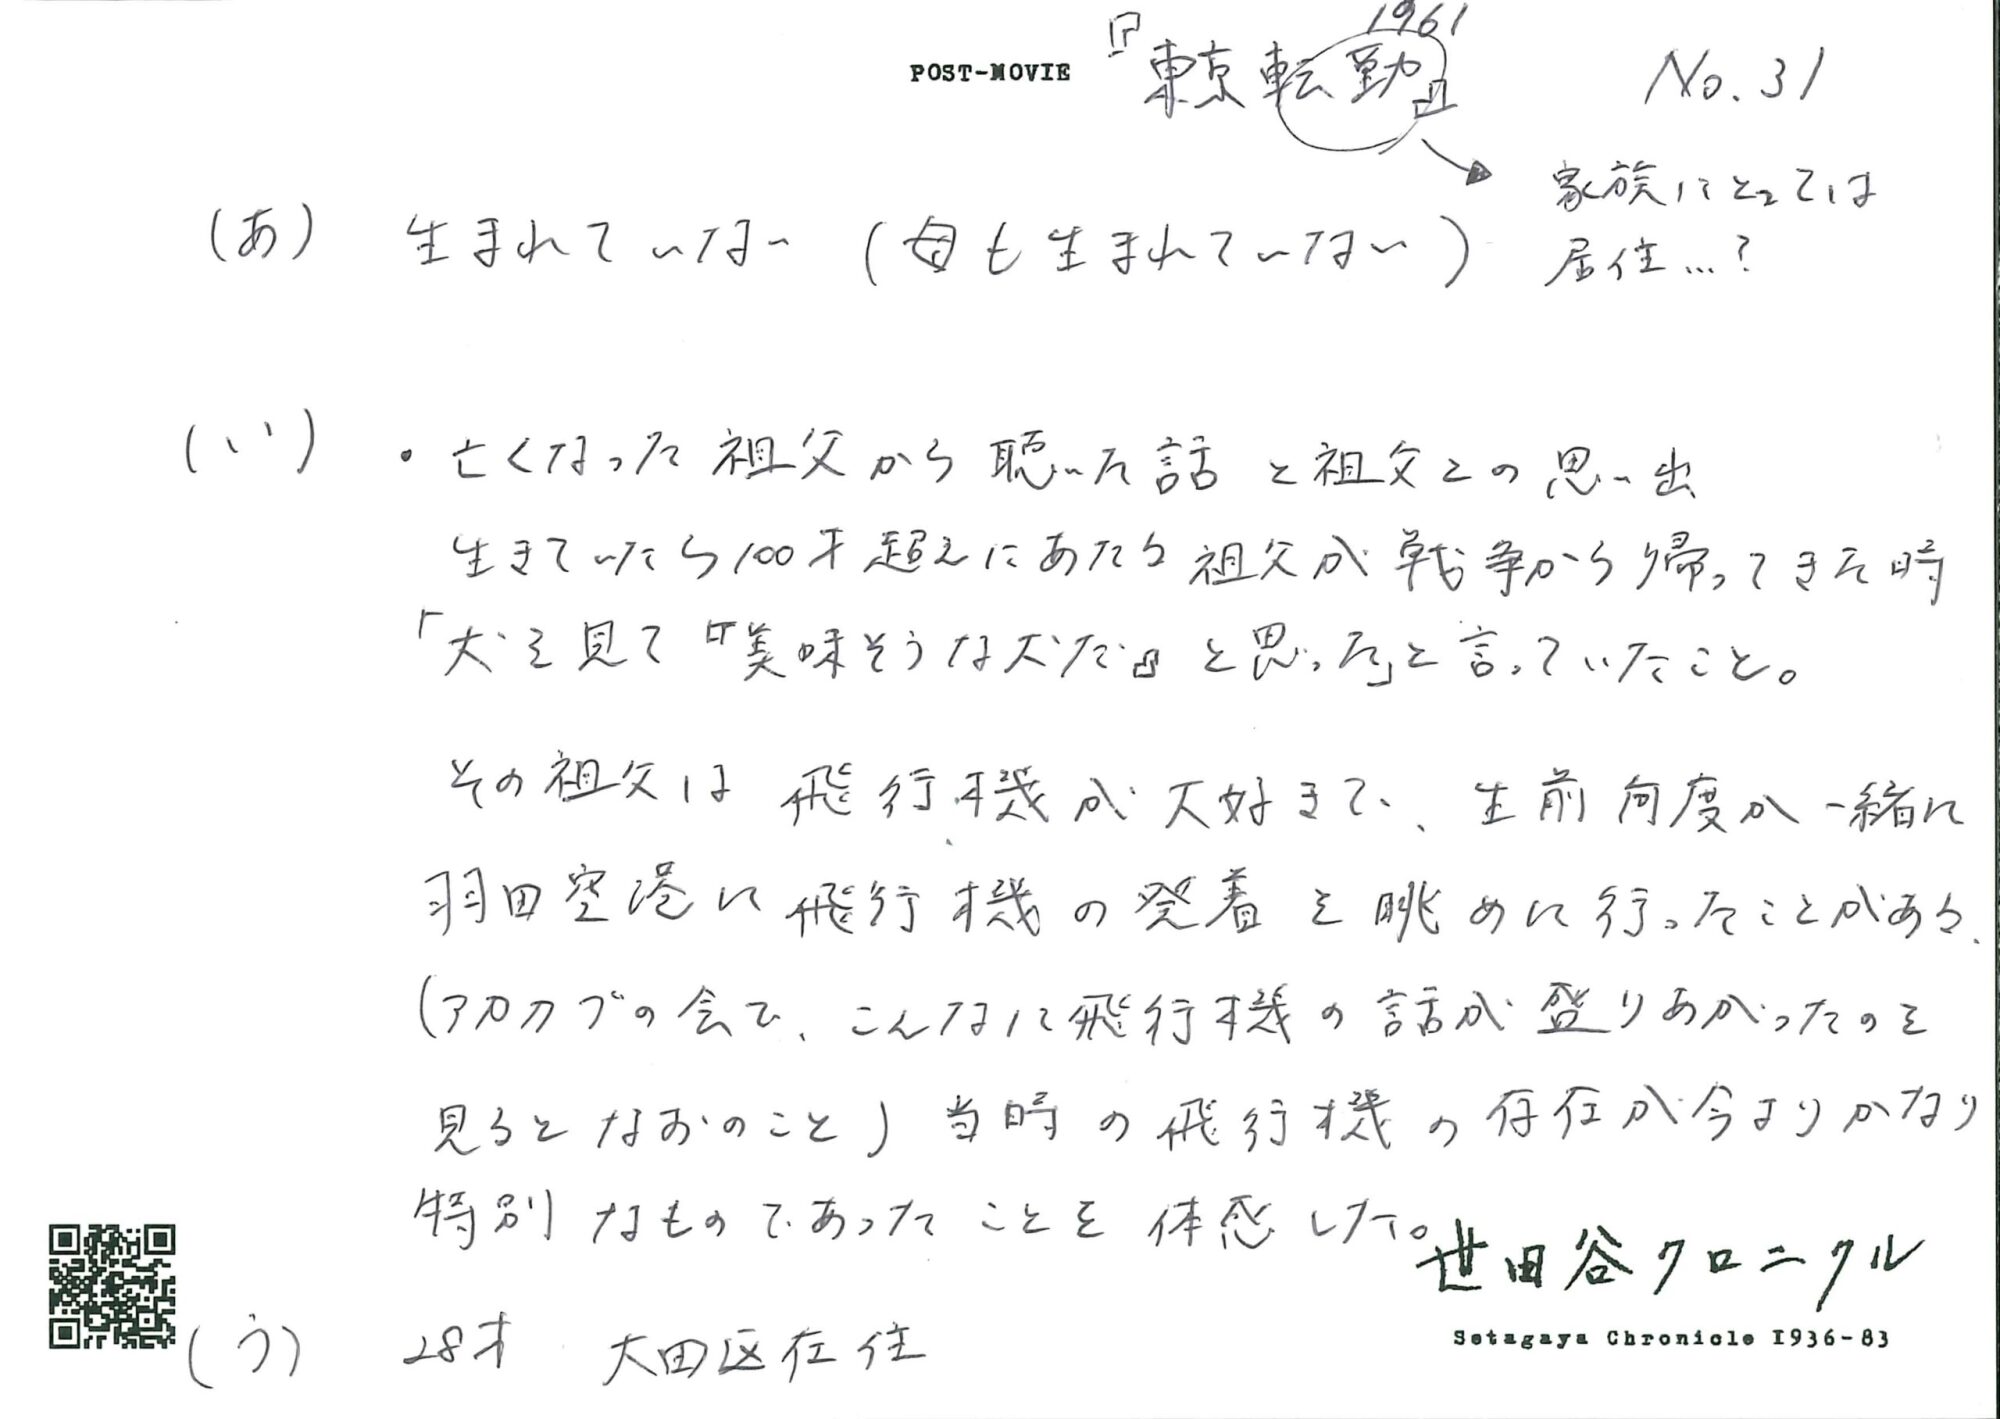 1961
POST-MOVIE 『東京転勤』 No.31
家族にとっては
居住…?
(あ) 生まれていない (母も生まれていない)
(い) ・亡くなった祖父から聴いた話と祖父との思い出
生きていたら100才超えにあたる祖父が戦争から帰ってきた時
「犬を見て『美味そうな犬だ』と思った」と言っていたこと。
その祖父は飛行機が大好きで、生前何度か一緒に
羽田空港に飛行機の発着を眺めに行ったことがある、
(アカカブの会で、こんなに飛行機の話が盛りあがったのを
見るとなおのこと)当時の飛行機の存在が今よりかなり
特別なものであったことを体感した。
世田谷クロニクル
Setagaya Chronicle 1936-83
(う) 28才 大田区在住